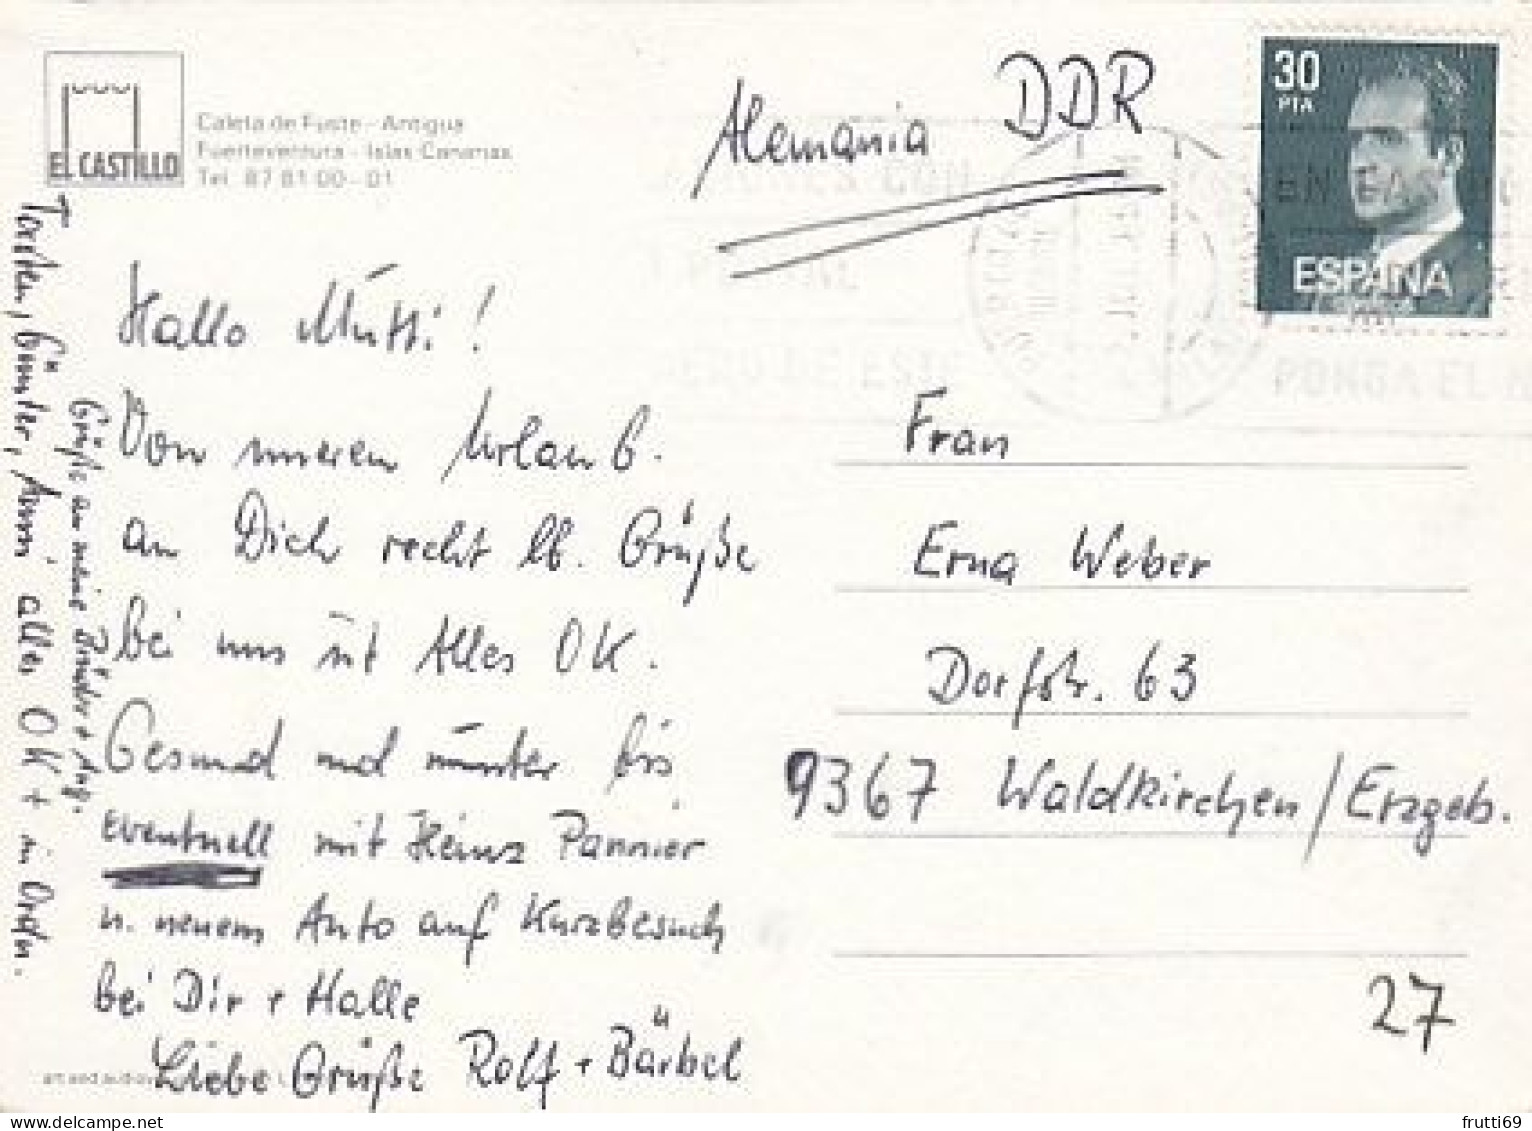 EL CASTILLO
Caleta de Fuste - Antigua
Fuerteventura - Islas Canarias
Tel. 87 81 00 - 01
Alemania DDR
30
PTA
ESPAÑA
PONGA EL N
ERO DE ESTE
Hallo Mutti!
Von unserem Urlaub.
an Dich recht lb. Grüße
bei uns ist Alles OK.
Gesund und munter bis
eventuell mit Heinz Pannier
u. neuem Auto auf Kurzbesuch
bei Dir + Halle
Liebe Grüße Rolf + Bärbel
Grüße an meine Brüder + Ang.
Torsten, Günter, Anni alles OK + in Ordn.
Frau
Erna Weber
Dorfstr. 63
9367 Waldkirchen/Erzgeb.
27
frutti69